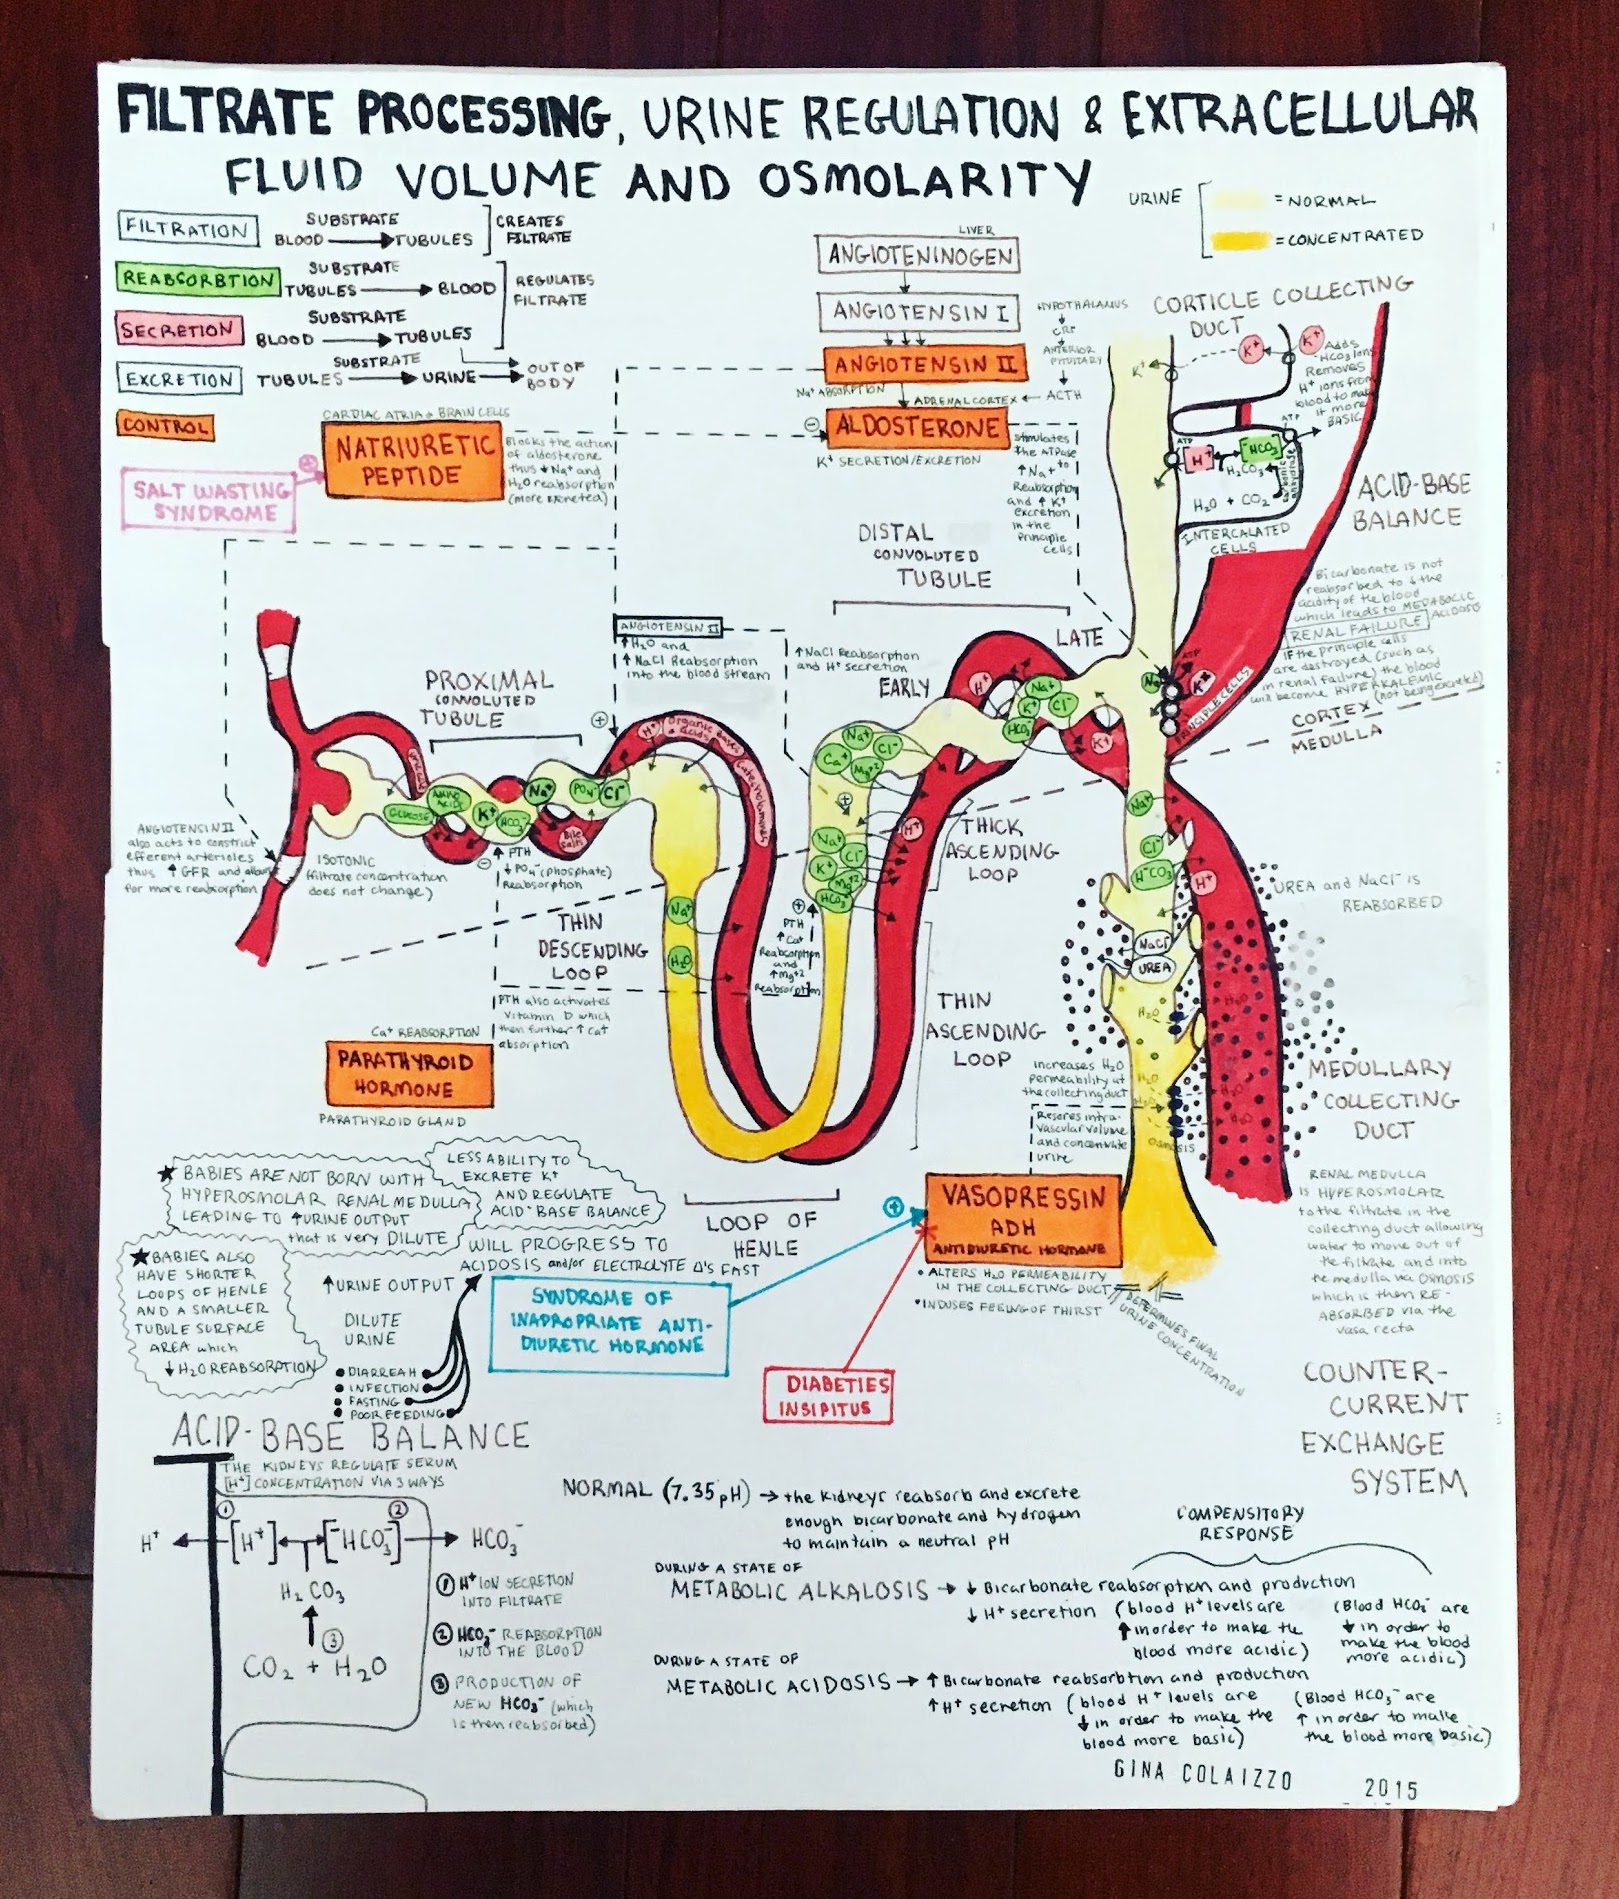 FILTRATE PROCESSING, URINE REGULATION & EXTRACELLULAR
FLUID VOLUME AND OSMOLARITY
URINE
= NORMAL
= CONCENTRATED
FILTRATION
SUBSTRATE
BLOOD → TUBULES
CREATES
FILTRATE
REABSORBTION
SUBSTRATE
TUBULES → BLOOD
REGULATES
FILTRATE
SECRETION
SUBSTRATE
BLOOD → TUBULES
EXCRETION
SUBSTRATE
TUBULES → URINE → OUT OF
BODY
CONTROL
CARDIAC ATRIA & BRAIN CELLS
NATRIURETIC
PEPTIDE
Blocks the action
of aldosterone
thus ↓ Na+ and
H2O reabsorption
(more excreted)
SALT WASTING
SYNDROME
LIVER
ANGIOTENINOGEN
ANGIOTENSIN I
ANGIOTENSIN II
Na+ ABSORPTION
ADRENAL CORTEX ← ACTH
HYPOTHALAMUS
CRF
ANTERIOR
PITUITARY
ALDOSTERONE
K+ SECRETION/EXCRETION
stimulates
the ATPase
to
↑ Na+
Reabsorption
and ↑ K+
excretion
in the
Principle
cells
CORTICLE COLLECTING
DUCT
K+
K+
K+
Adds
HCO3 Ions
Removes
H+ ions from
blood to make
it more
BASIC
ATP
ATP
H+
HCO3-
H2CO3
H2O + CO2
carbonic
anhydrase
INTERCALATED
CELLS
ACID-BASE
BALANCE
Bicarbonate is not
reabsorbed to ↓ the
acidity of the blood
which leads to METABOLIC
ACIDOSIS
RENAL FAILURE
IF the principle cells
are destroyed (such as
in renal failure) the blood
will become HYPERKALEMIC
(not being excreted)
CORTEX
MEDULLA
DISTAL
CONVOLUTED
TUBULE
LATE
EARLY
ANGIOTENSIN II
↑ H2O and
↑ NaCl Reabsorption
into the blood stream
↑ NaCl Reabsorption
and H+ secretion
PROXIMAL
CONVOLUTED
TUBULE
GLUCOSE
AMINO
ACIDS
K+
HCO3-
Na+
PO4-
Cl-
Bile
salts
H+
Organic Bases
& Acids
Catecholamines
Na+
Cl-
Ca+
Mg+2
Na+
K+
Cl-
HCO3-
H+
K+
Na+
ATP
PRINCIPLE CELLS
ANGIOTENSIN II
also acts to constrict
efferent arterioles
thus ↑ GFR and allow
for more reabsorption
ISOTONIC
(filtrate concentration
does not change)
PTH
↓ PO4- (phosphate)
Reabsorption
THIN
DESCENDING
LOOP
Na+
H2O
Na+
Cl-
K+
Mg+2
HCO3-
H+
PTH
↑ Ca+
Reabsorption
and
↑ Mg+2
Reabsorption
THICK
ASCENDING
LOOP
THIN
ASCENDING
LOOP
Na+
Cl-
HCO3
H+
NaCl
UREA
UREA and NaCl- is
REABSORBED
H2O
H2O
H2O
H2O
H2O
OSMOSIS
PTH also activates
Vitamin D which
then further ↑ Ca+
absorption
Ca+ REABSORPTION
PARATHYROID
HORMONE
PARATHYROID GLAND
increases H2O
permeability at
the collecting duct
Resores intra-
vascular volume
and concentrate
urine
VASOPRESSIN
ADH
ANTIDIURETIC HORMONE
• ALTERS H2O PERMEABILITY
IN THE COLLECTING DUCT
• INDUSES FEELING OF THIRST
DETERMINES FINAL
URINE CONCENTRATION
MEDULLARY
COLLECTING
DUCT
RENAL MEDULLA
IS HYPEROSMOLAR
to the filtrate in the
collecting duct allowing
water to move out of
the filtrate and into
the medulla via OSMOSIS
which is then RE-
ABSORBED via the
vasa recta
COUNTER-
CURRENT
EXCHANGE
SYSTEM
LOOP OF
HENLE
★ BABIES ARE NOT BORN WITH
HYPEROSMOLAR RENAL MEDULLA
LEADING TO ↑ URINE OUTPUT
that is very DILUTE
LESS ABILITY TO
EXCRETE K+
AND REGULATE
ACID-BASE BALANCE
★ BABIES ALSO
HAVE SHORTER
LOOPS OF HENLE
AND A SMALLER
TUBULE SURFACE
AREA which
↓ H2O REABSORATION
WILL PROGRESS TO
ACIDOSIS and/or ELECTROLYTE Δ'S FAST
↑ URINE OUTPUT
DILUTE
URINE
• DIARREAH
• INFECTION
• FASTING
• POOR FEEDING
SYNDROME OF
INAPROPRIATE ANTI-
DIURETIC HORMONE
DIABETIES
INSIPITUS
ACID-BASE BALANCE
THE KIDNEYS REGULATE SERUM
[H+] CONCENTRATION VIA 3 WAYS
① ②
H+ ← [H+] ↔ [-HCO3] → HCO3-
H2CO3
↑ ③
CO2 + H2O
① H+ ION SECRETION
INTO FILTRATE
② HCO3- REABSORPTION
INTO THE BLOOD
③ PRODUCTION OF
NEW HCO3- (which
is then reabsorbed)
NORMAL (7.35 pH) → the kidneys reabsorb and excrete
enough bicarbonate and hydrogen
to maintain a neutral pH
COMPENSITORY
RESPONSE
DURING A STATE OF
METABOLIC ALKALOSIS → ↓ Bicarbonate reabsorption and production
↓ H+ secretion (blood H+ levels are
↑ in order to make the
blood more acidic)
(Blood HCO3- are
↓ in order to
make the blood
more acidic)
DURING A STATE OF
METABOLIC ACIDOSIS → ↑ Bicarbonate reabsorbtion and production
↑ H+ secretion (blood H+ levels are
↓ in order to make the
blood more basic)
(Blood HCO3- are
↑ in order to make
the blood more basic)
GINA COLAIZZO
2015